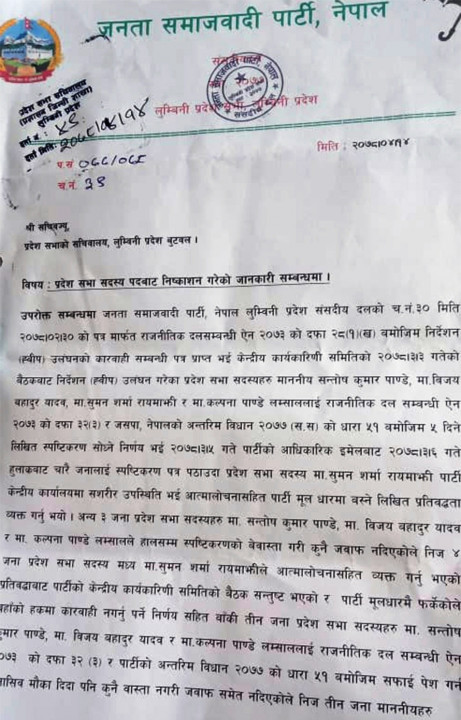 जनता समाजवादी पार्टी, नेपाल
संसदीय
लुम्बिनी प्रदेश सभा, लुम्बिनी प्रदेश
मिति : २०७८।०४।१४
प.सं ०७८/०७९
च.नं. ३९
श्री सचिवज्यू,
प्रदेश सभाको सचिवालय, लुम्बिनी प्रदेश बुटवल ।
विषय : प्रदेश सभा सदस्य पदबाट निष्काशन गरेको जानकारी सम्बन्धमा ।
उपरोक्त सम्बन्धमा जनता समाजवादी पार्टी, नेपाल लुम्बिनी प्रदेश संसदीय दलको च.नं.३० मिति
२०७८।०२।३० को पत्र मार्फत राजनीतिक दलसम्बन्धी ऐन २०७३ को दफा २८(१)(ख) बमोजिम निर्देशन
(ह्वीप) उलंघनको कारवाही सम्बन्धी पत्र प्राप्त भई केन्द्रीय कार्यकारिणी समितिको २०७८।३।३ गतेको
बैठकबाट निर्देशन (ह्वीप) उलंघन गरेका प्रदेश सभा सदस्यहरु माननीय सन्तोष कुमार पाण्डे, मा.विजय
बहादुर यादव, मा.सुमन शर्मा रायमाझी र मा.कल्पना पाण्डे लम्साललाई राजनीतिक दल सम्बन्धी ऐन
२०७३ को दफा ३२(३) र जसपा, नेपालको अन्तरिम विधान २०७७ (स.स) को धारा ५१ बमोजिम ५ दिने
लिखित स्पष्टिकरण सोध्ने निर्णय भई २०७८।३।५ गते पार्टीको आधिकारिक इमेलबाट २०७८।३।६ गते
हुलाकबाट चारै जनालाई स्पष्टिकरण पत्र पठाउदा प्रदेश सभा सदस्य मा.सुमन शर्मा रायमाझी पार्टी
केन्द्रीय कार्यालयमा सशरीर उपस्थिति भई आत्मालोचनासहित पार्टी मूल धारमा बस्ने लिखित प्रतिबद्धता
व्यक्त गर्नु भयो । अन्य ३ जना प्रदेश सभा सदस्यहरु मा. सन्तोष कुमार पाण्डे, मा. विजय बहादुर यादव
र मा. कल्पना पाण्डे लम्सालले हालसम्म स्पष्टिकरणको बेवास्ता गरी कुनै जवाफ नदिएकोले निज ४
जना प्रदेश सभा सदस्य मध्य मा.सुमन शर्मा रायमाझीले आत्मालोचनासहित व्यक्त गर्नु भएको
प्रतिवद्धाबाट पार्टीको केन्द्रीय कार्यकारिणी समितिको बैठक सन्तुष्ट भएको र पार्टी मूलधारमै फर्केकोले
वहाँको हकमा कारवाही नगर्नु पर्ने निर्णय सहित बाँकी तीन जना प्रदेश सभा सदस्यहरु मा. सन्तोष
कुमार पाण्डे, मा. विजय बहादुर यादव र मा.कल्पना पाण्डे लम्साललाई राजनीतिक दल सम्बन्धी ऐन
२०७३ को दफा ३२ (३) र पार्टीको अन्तरिम विधान २०७७ को धारा ५१ बमोजिम सफाई पेश गर्न
मनासिव मौका दिदा पनि कुनै वास्ता नगरी जवाफ समेत नदिएकोले निज तीन जना माननीयहरु